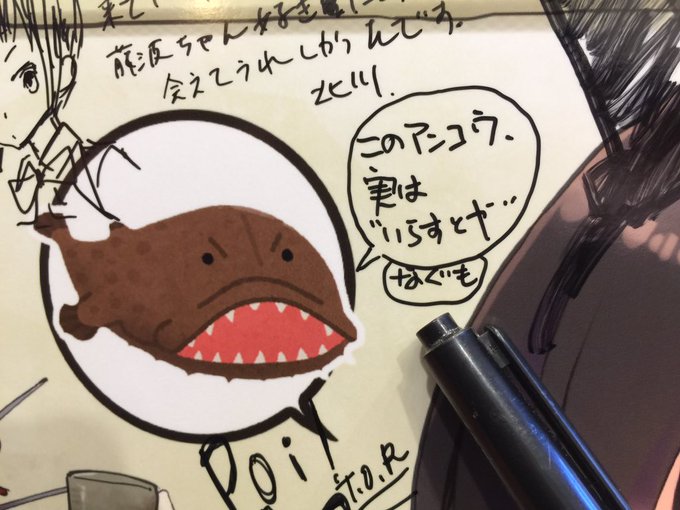 来て
藤波ちゃん好き
会えてうれしかったんです。
北川.
このアンコウ、
実は
"いらすとや"
なぐも
Poi!
T.O.R